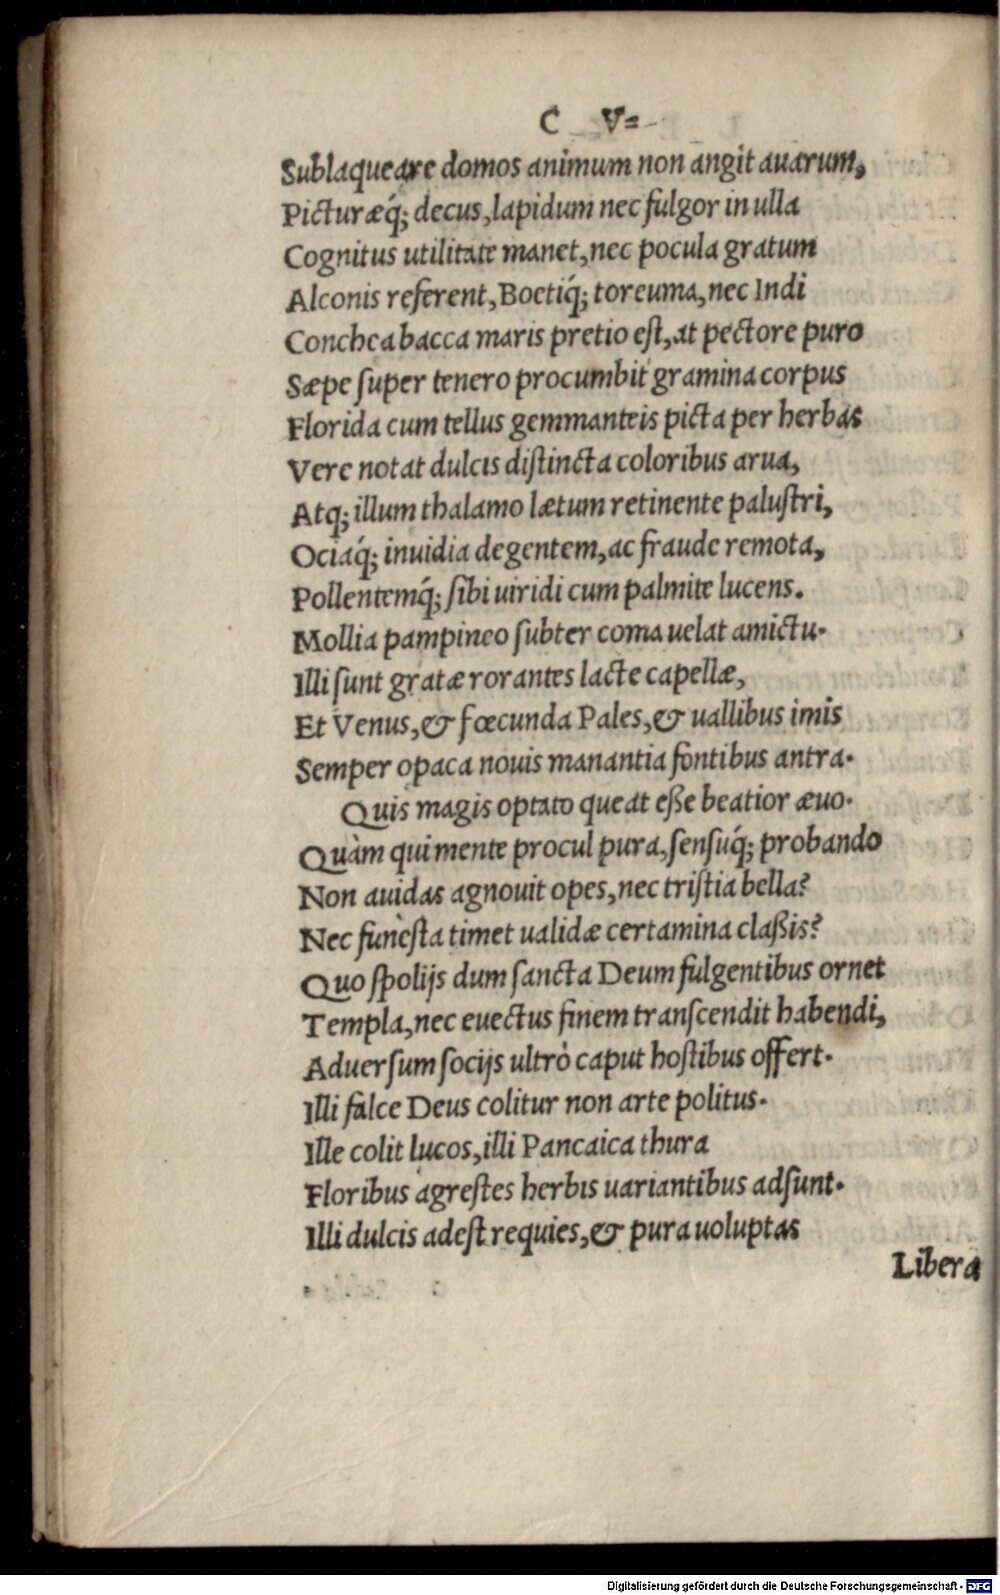 C V=
Sublaqueare domos animum non angit auarum,
Picturæq́; decus, lapidum nec fulgor in ulla
Cognitus utilitate manet, nec pocula gratum
Alconis referent, Boetiq́; toreuma, nec Indi
Conchea bacca maris pretio est, at pectore puro
Sæpe super tenero procumbit gramina corpus
Florida cum tellus gemmanteis picta per herbas
Vere notat dulcis distincta coloribus arua,
Atq; illum thalamo lætum retinente palustri,
Ociaq́; inuidia degentem, ac fraude remota,
Pollentemq́; sibi uiridi cum palmite lucens.
Mollia pampineo subter coma uelat amictu.
Illi sunt gratæ rorantes lacte capellæ,
Et Venus, & fœcunda Pales, & uallibus imis
Semper opaca nouis manantia fontibus antra.
Quis magis optato queat eße beatior æuo.
Quàm qui mente procul pura, sensuq́; probando
Non auidas agnouit opes, nec tristia bella?
Nec funèsta timet ualidæ certamina claßis?
Quo spolijs dum sancta Deum fulgentibus ornet
Templa, nec euectus finem transcendit habendi,
Aduersum socijs ultrò caput hostibus offert.
Illi falce Deus colitur non arte politus.
Ille colit lucos, illi Pancaica thura
Floribus agrestes herbis uariantibus adsunt.
Illi dulcis adest requies, & pura uoluptas
Libera
Digitalisierung gefördert durch die Deutsche Forschungsgemeinschaft - DFG